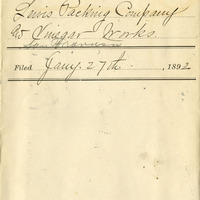 Lewis Packing Company
& Vinegar Works.
San Francisco
Filed Jany. 27th . , 1892